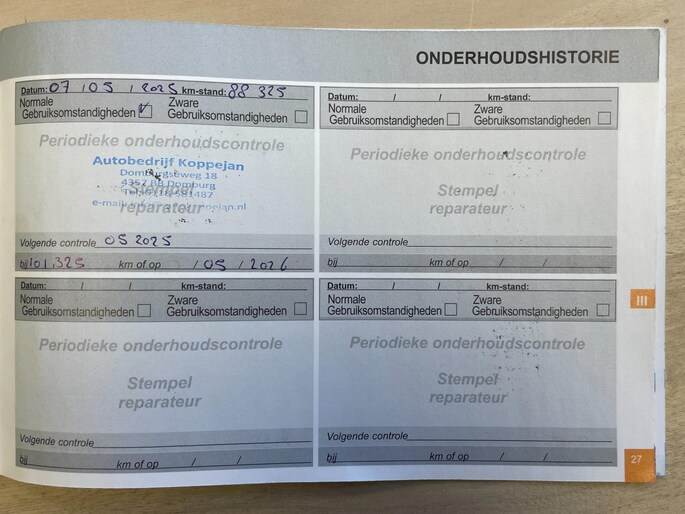 ONDERHOUDSHISTORIE
Datum: 07 / 05 / 2025 km-stand: 88 325
Normale Gebruiksomstandigheden Zware Gebruiksomstandigheden
Periodieke onderhoudscontrole
Autobedrijf Koppejan
Domburgseweg 18
4357 BB Domburg
Stempel
reparateur
Volgende controle 05 2025
bij 101.325 km of op / 05 / 2026
Datum: / / km-stand:
Normale Gebruiksomstandigheden Zware Gebruiksomstandigheden
Periodieke onderhoudscontrole
Stempel
reparateur
Volgende controle
bij km of op / /
III
Datum: / / km-stand:
Normale Gebruiksomstandigheden Zware Gebruiksomstandigheden
Periodieke onderhoudscontrole
Stempel
reparateur
Volgende controle
bij km of op / /
Datum: / / km-stand:
Normale Gebruiksomstandigheden Zware Gebruiksomstandigheden
Periodieke onderhoudscontrole
Stempel
reparateur
Volgende controle
bij km of op / /
27